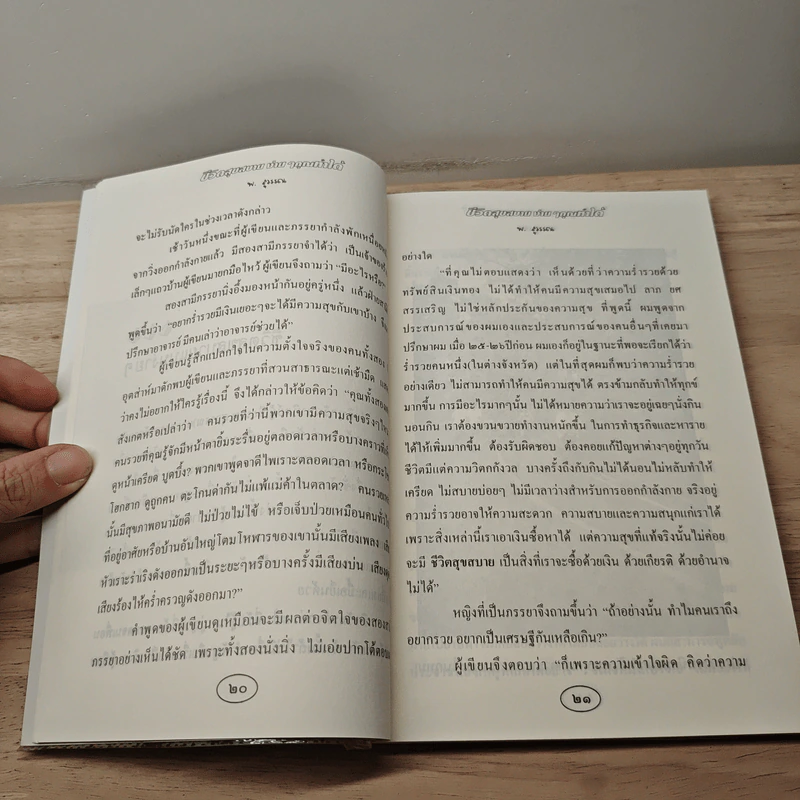 ชีวิตสุขสบาย ง่าย ๆ คุณทำได้
พ. สุวรรณ
จะไม่รับนัดใครในช่วงเวลาดังกล่าว
เช้าวันหนึ่งขณะที่ผู้เขียนและภรรยากำลังพักเหนื่อย
จากวิ่งออกกำลังกายแล้ว มีสองสามีภรรยาจำได้ว่า เป็นเจ้าของ
เล็กๆแถวบ้านผู้เขียนมายกมือไหว้ ผู้เขียนจึงถามว่า “มีอะไรหรือ”
สองสามีภรรยานิ่งอึ้งมองหน้ากันอยู่ครู่หนึ่ง แล้วฝ่าย
พูดขึ้นว่า “อยากร่ำรวยมีเงินเยอะๆจะได้มีความสุขกับเขาบ้าง
ปรึกษาอาจารย์ มีคนเล่าว่าอาจารย์ช่วยได้”
ผู้เขียนรู้สึกแปลกใจในความตั้งใจจริงของคนทั้งสอง
อุตส่าห์มาดักพบผู้เขียนและภรรยาที่สวนสาธารณะแต่เช้ามืด และ
ว่าคงไม่อยากให้ใครรู้เรื่องนี้ จึงได้กล่าวให้ข้อคิดว่า “คุณทั้งสอง
สังเกตหรือเปล่าว่า คนรวยที่ว่านี้พวกเขามีความสุขจริงๆ
คนรวยที่คุณรู้จักมีหน้าตายิ้มระรื่นอยู่ตลอดเวลาหรือบางคราว
ดูหน้าเครียด บูดบึ้ง? พวกเขาพูดจาดีไพเราะตลอดเวลา หรือ
โฮกฮาก ดูถูกคน ตะโกนด่ากันไม่แพ้แม่ค้าในตลาด? คนรวย
นั้นมีสุขภาพอนามัยดี ไม่ป่วยไม่ไข้ หรือเจ็บป่วยเหมือนคนทั่ว
ที่อยู่อาศัยหรือบ้านอันใหญ่โตมโหฬารของเขานั้นมีเสียงเพลง
หัวเราะร่าเริงดังออกมาเป็นระยะๆหรือบางครั้งมีเสียงบ่น
เสียงร้องไห้คร่ำครวญดังออกมา?”
คำพูดของผู้เขียนดูเหมือนจะมีผลต่อจิตใจของสอง
ภรรยาอย่างเห็นได้ชัด เพราะทั้งสองนั่งนิ่ง ไม่เอ่ยปากโต้ตอบ
๒๐
ชีวิตสุขสบาย ง่าย ๆ คุณทำได้
พ. สุวรรณ
อย่างใด
“ที่คุณไม่ตอบแสดงว่า เห็นด้วยที่ว่าความร่ำรวยด้วย
ทรัพย์สินเงินทอง ไม่ได้ทำให้คนมีความสุขเสมอไป ลาภ ยศ
สรรเสริญ ไม่ใช่หลักประกันของความสุข ที่พูดนี้ ผมพูดจาก
ประสบการณ์ของผมเองและประสบการณ์ของคนอื่นๆที่เคยมา
ปรึกษาผม เมื่อ ๒๕-๒๖ปีก่อน ผมเองก็อยู่ในฐานะที่พอจะเรียกได้ว่า
ร่ำรวยคนหนึ่ง(ในต่างจังหวัด) แต่ในที่สุดผมก็พบว่าความร่ำรวย
อย่างเดียว ไม่สามารถทำให้คนมีความสุขได้ ตรงข้ามกลับทำให้ทุกข์
มากขึ้น การมีอะไรมากๆนั้น ไม่ได้หมายความว่าเราจะอยู่เฉยๆนั่งกิน
นอนกิน เราต้องขวนขวายทำงานหนักขึ้น ในการทำธุรกิจและหาราย
ได้ให้เพิ่มมากขึ้น ต้องรับผิดชอบ ต้องคอยแก้ปัญหาต่างๆอยู่ทุกวัน
ชีวิตมีแต่ความวิตกกังวล บางครั้งถึงกับกินไม่ได้นอนไม่หลับทำให้
เครียด ไม่สบายบ่อยๆ ไม่มีเวลาว่างสำหรับการออกกำลังกาย จริงอยู่
ความร่ำรวยอาจให้ความสะดวก ความสบายและความสนุกแก่เราได้
เพราะสิ่งเหล่านี้เราเอาเงินซื้อหาได้ แต่ความสุขที่แท้จริงนั้นไม่ค่อย
จะมี ชีวิตสุขสบาย เป็นสิ่งที่เราจะซื้อด้วยเงิน ด้วยเกียรติ ด้วยอำนาจ
ไม่ได้”
หญิงที่เป็นภรรยาจึงถามขึ้นว่า “ถ้าอย่างนั้น ทำไมคนเราถึง
อยากรวย อยากเป็นเศรษฐีกันเหลือเกิน?”
ผู้เขียนจึงตอบว่า “ก็เพราะความเข้าใจผิด คิดว่าความ
๒๑